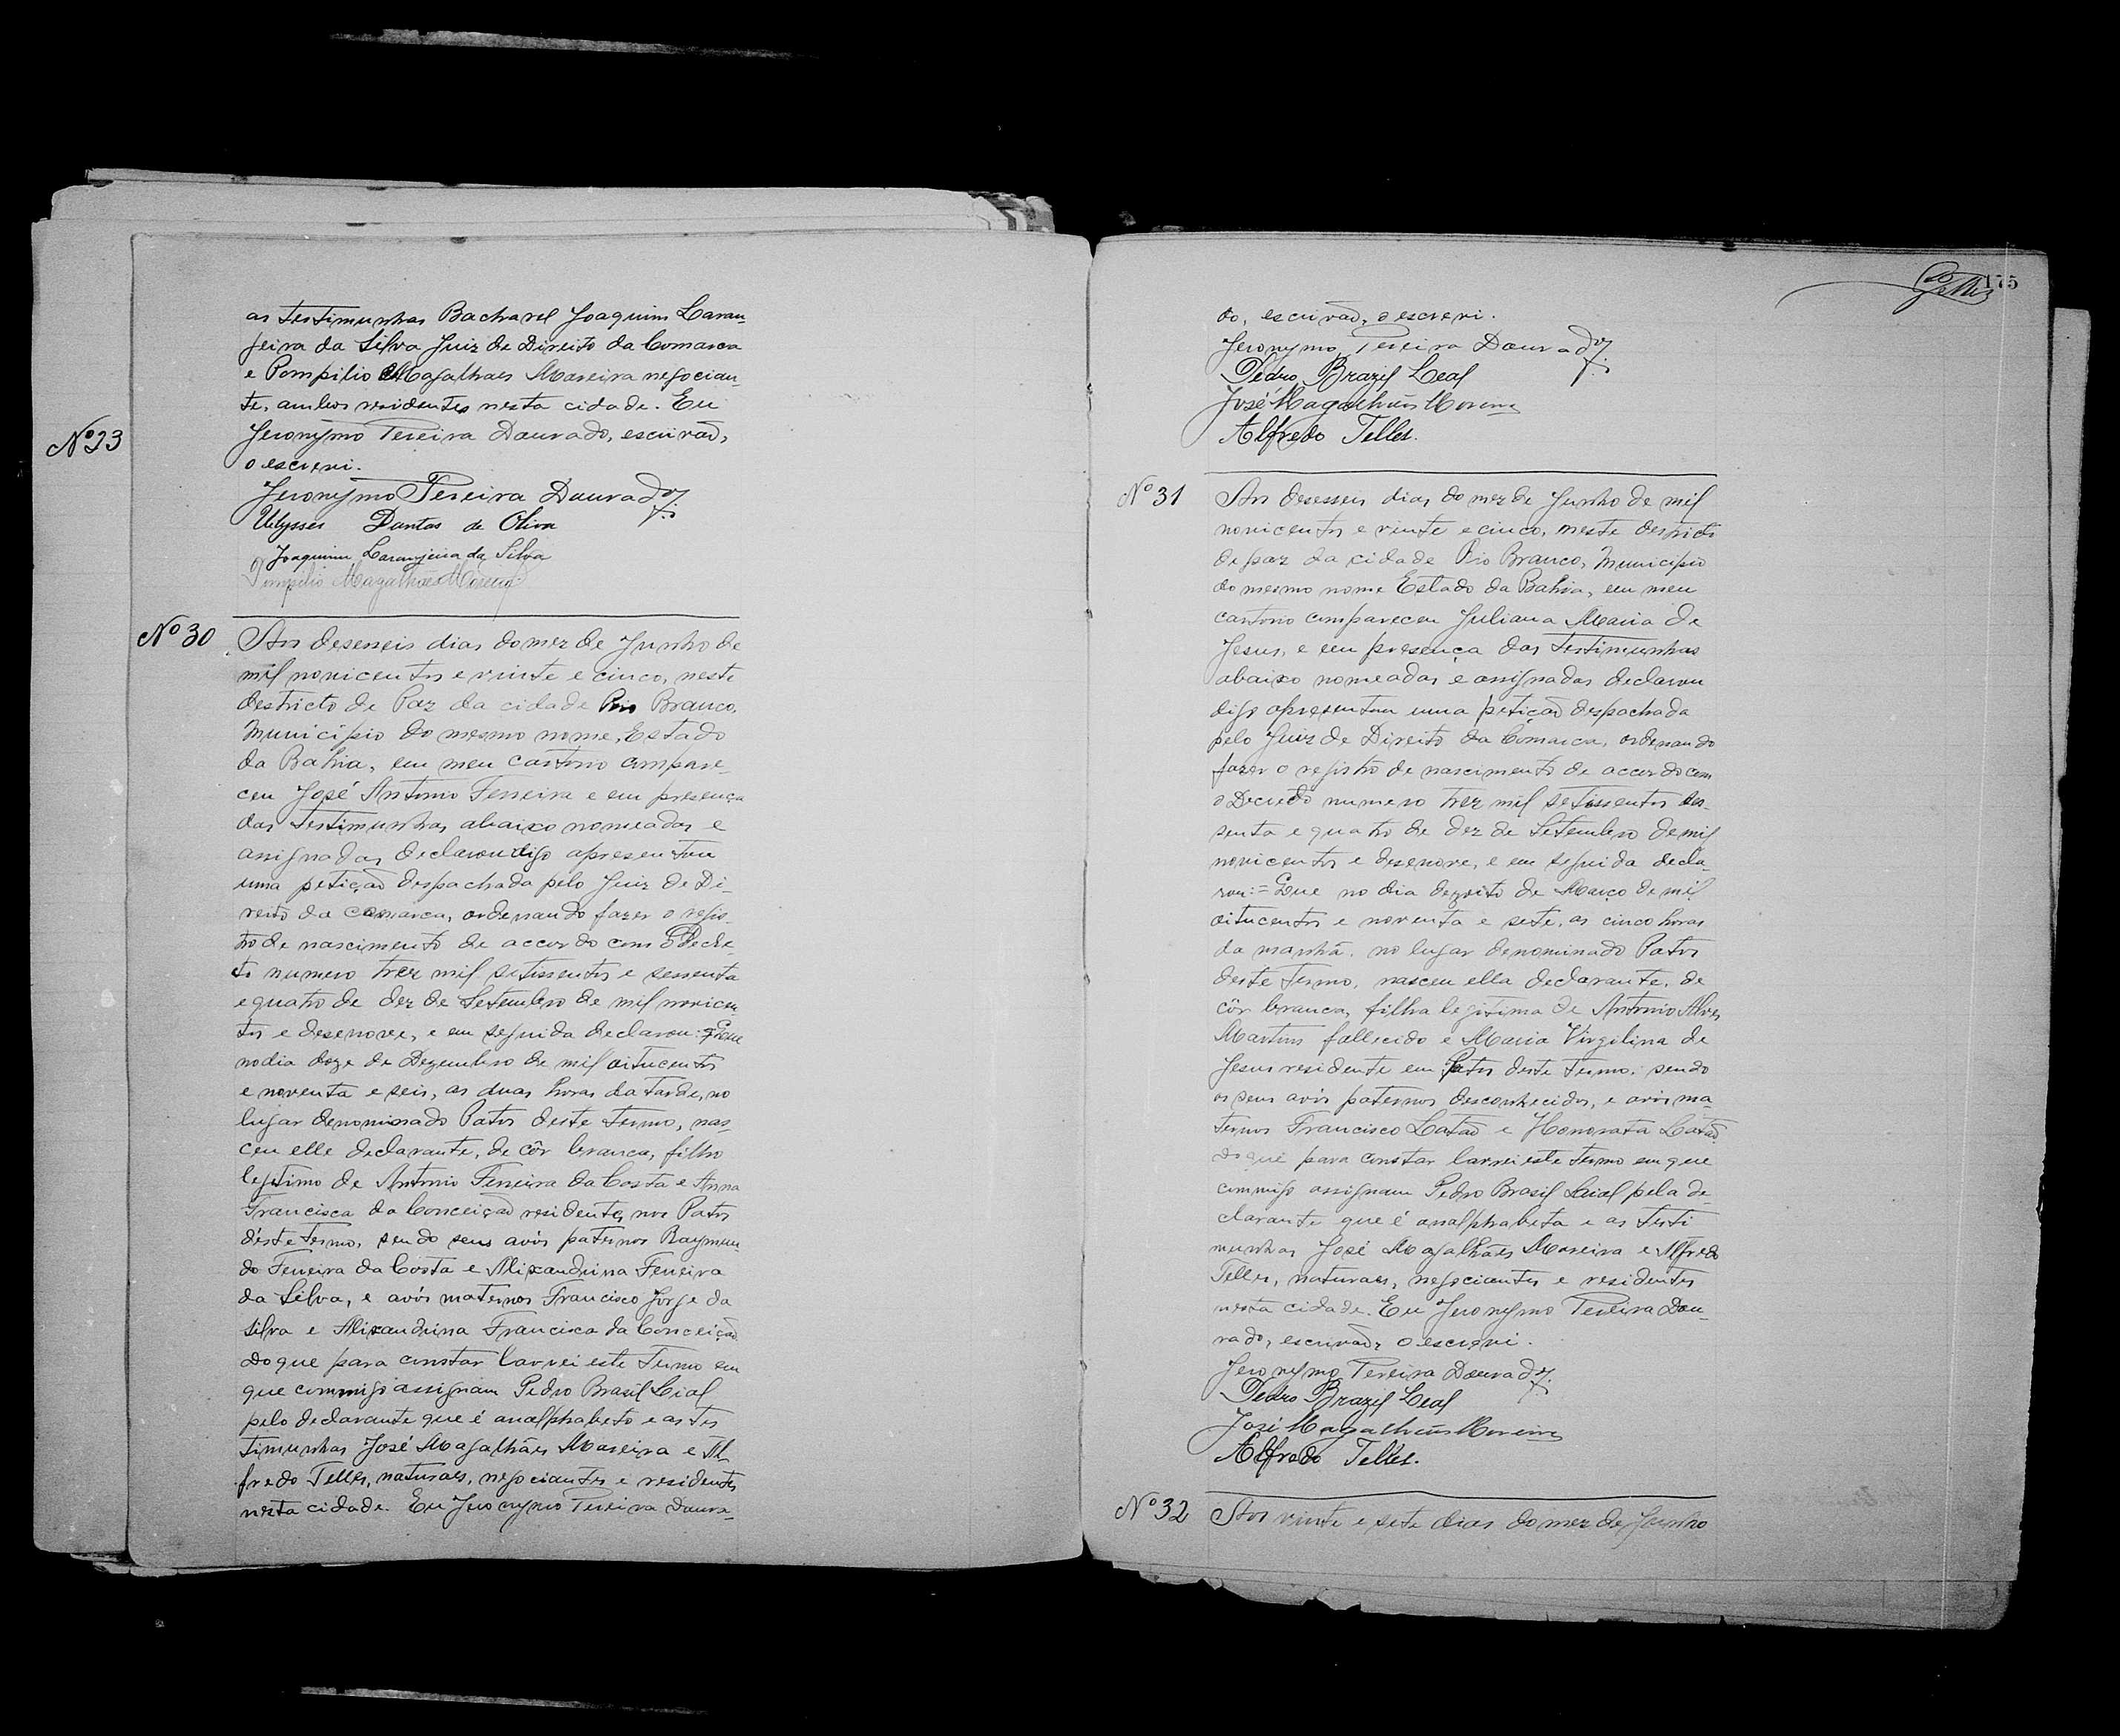 as testimunhas Bacharel Joaquim Laran-
jeira da Silva Juiz de Direito da Comarca
e Pompilio Magalhaes Moreira negocian-
te, ambos residentes nesta cidade. Eu
Jeronymo Pereira Dourado, escrivão,
o escrevi.
Jeronymo Pereira Dourado
Ulysses Dantas de Oliva
Joaquim Laranjeira da Silva
Pompilio Magalhães Moreira
Nº 23
Nº 30
Aos deseseis dias do mez de Junho de
mil novicentos e vinte e cinco, neste
destricto de Paz da cidade Rio Branco,
Municipio do mesmo nome, Estado
da Bahia, em meu cartorio compare-
ceu José Antonio Ferreira e em presença
das testimunhas abaixo nomeadas e
assignadas declarou digo apresentou
uma petição despachada pelo Juiz de Di-
reito da Comarca, ordenando fazer o regis-
tro de nascimento de accordo com o Decre-
to numero trez mil setissentos e sessenta
e quatro de dez de Setembro de mil novicen
tos e desenove, e em seguida declarou: Que
no dia doze de Dezembro de mil oitucentos
e noventa e seis, as duas horas da tarde, no
lugar denominado Patos deste termo, nas-
ceu elle declarante, de côr branca, filho
legitimo de Antonio Ferreira da Costa e Anna
Francisca da Conceição residentes nos Patos
déste termo, sendo seus avós paternos Raymun-
do Ferreira da Costa e Alixandrina Ferreira
da Silva, e avós maternos Francisco Jorge da
Silva e Alixandrina Francisca da Conceição
Do que para constar lavrei este termo em
que commigo assignam Pedro Brasil Lial
pelo declarante que é analphabeto e as tes
timunhas José Magalhães Moreira e Al-
fredo Telles, naturaes, negociantes e residentes
nesta cidade. Eu Jeronymo Pereira Doura-
175
do, escrivão, o escrevi.
Jeronymo Pereira Dourado
Pedro Brazil Leal
José Magalhães Moreira
Alfredo Telles.
Nº 31
Aos deseseis dias do mez de Junho de mil
novicentos e vinte e cinco, neste destricto
de paz da cidade Rio Branco, Municipio
do mesmo nome Estado da Bahia, em meu
cartorio compareceu Juliana Maria de
Jesus, e em presença das testimunhas
abaixo nomeadas e assignadas declarou
digo apresentou uma petição despachada
pelo Juiz de Direito da Comarca, ordenando
fazer o registro de nascimento de accordo com
o Decreto numero trez mil setissentos ses-
senta e quatro de dez de Setembro de mil
novicentos e desenove, e em seguida decla-
rou:= Que no dia dezoito de Março de mil
oitucentos e noventa e sete, as cinco horas
da manhã, no lugar denominado Patos
deste termo, nasceu ella declarante, de
côr branca, filha legitima de Antonio Alves
Martins fallecido e Maria Virgilina de
Jesus residente em Patos deste termo, sendo
os seus avós paternos desconhecidos, e avós ma-
ternos Francisco Catão e Honorata Catão
Do que para constar lavrei este termo em que
commigo assignam Pedro Brasil Leial pela de
clarante que é analphabeta e as testi
munhas José Magalhães Moreira e Alfredo
Telles, naturaes, negociantes e residentes
nesta cidade. Eu Jeronymo Pereira Dou-
rado, escrivão, o escrevi.
Jeronymo Pereira Dourado
Pedro Brazil Leal
José Magalhães Moreira
Alfredo Telles.
Nº 32
Aos vinte e sete dias do mez de Junho